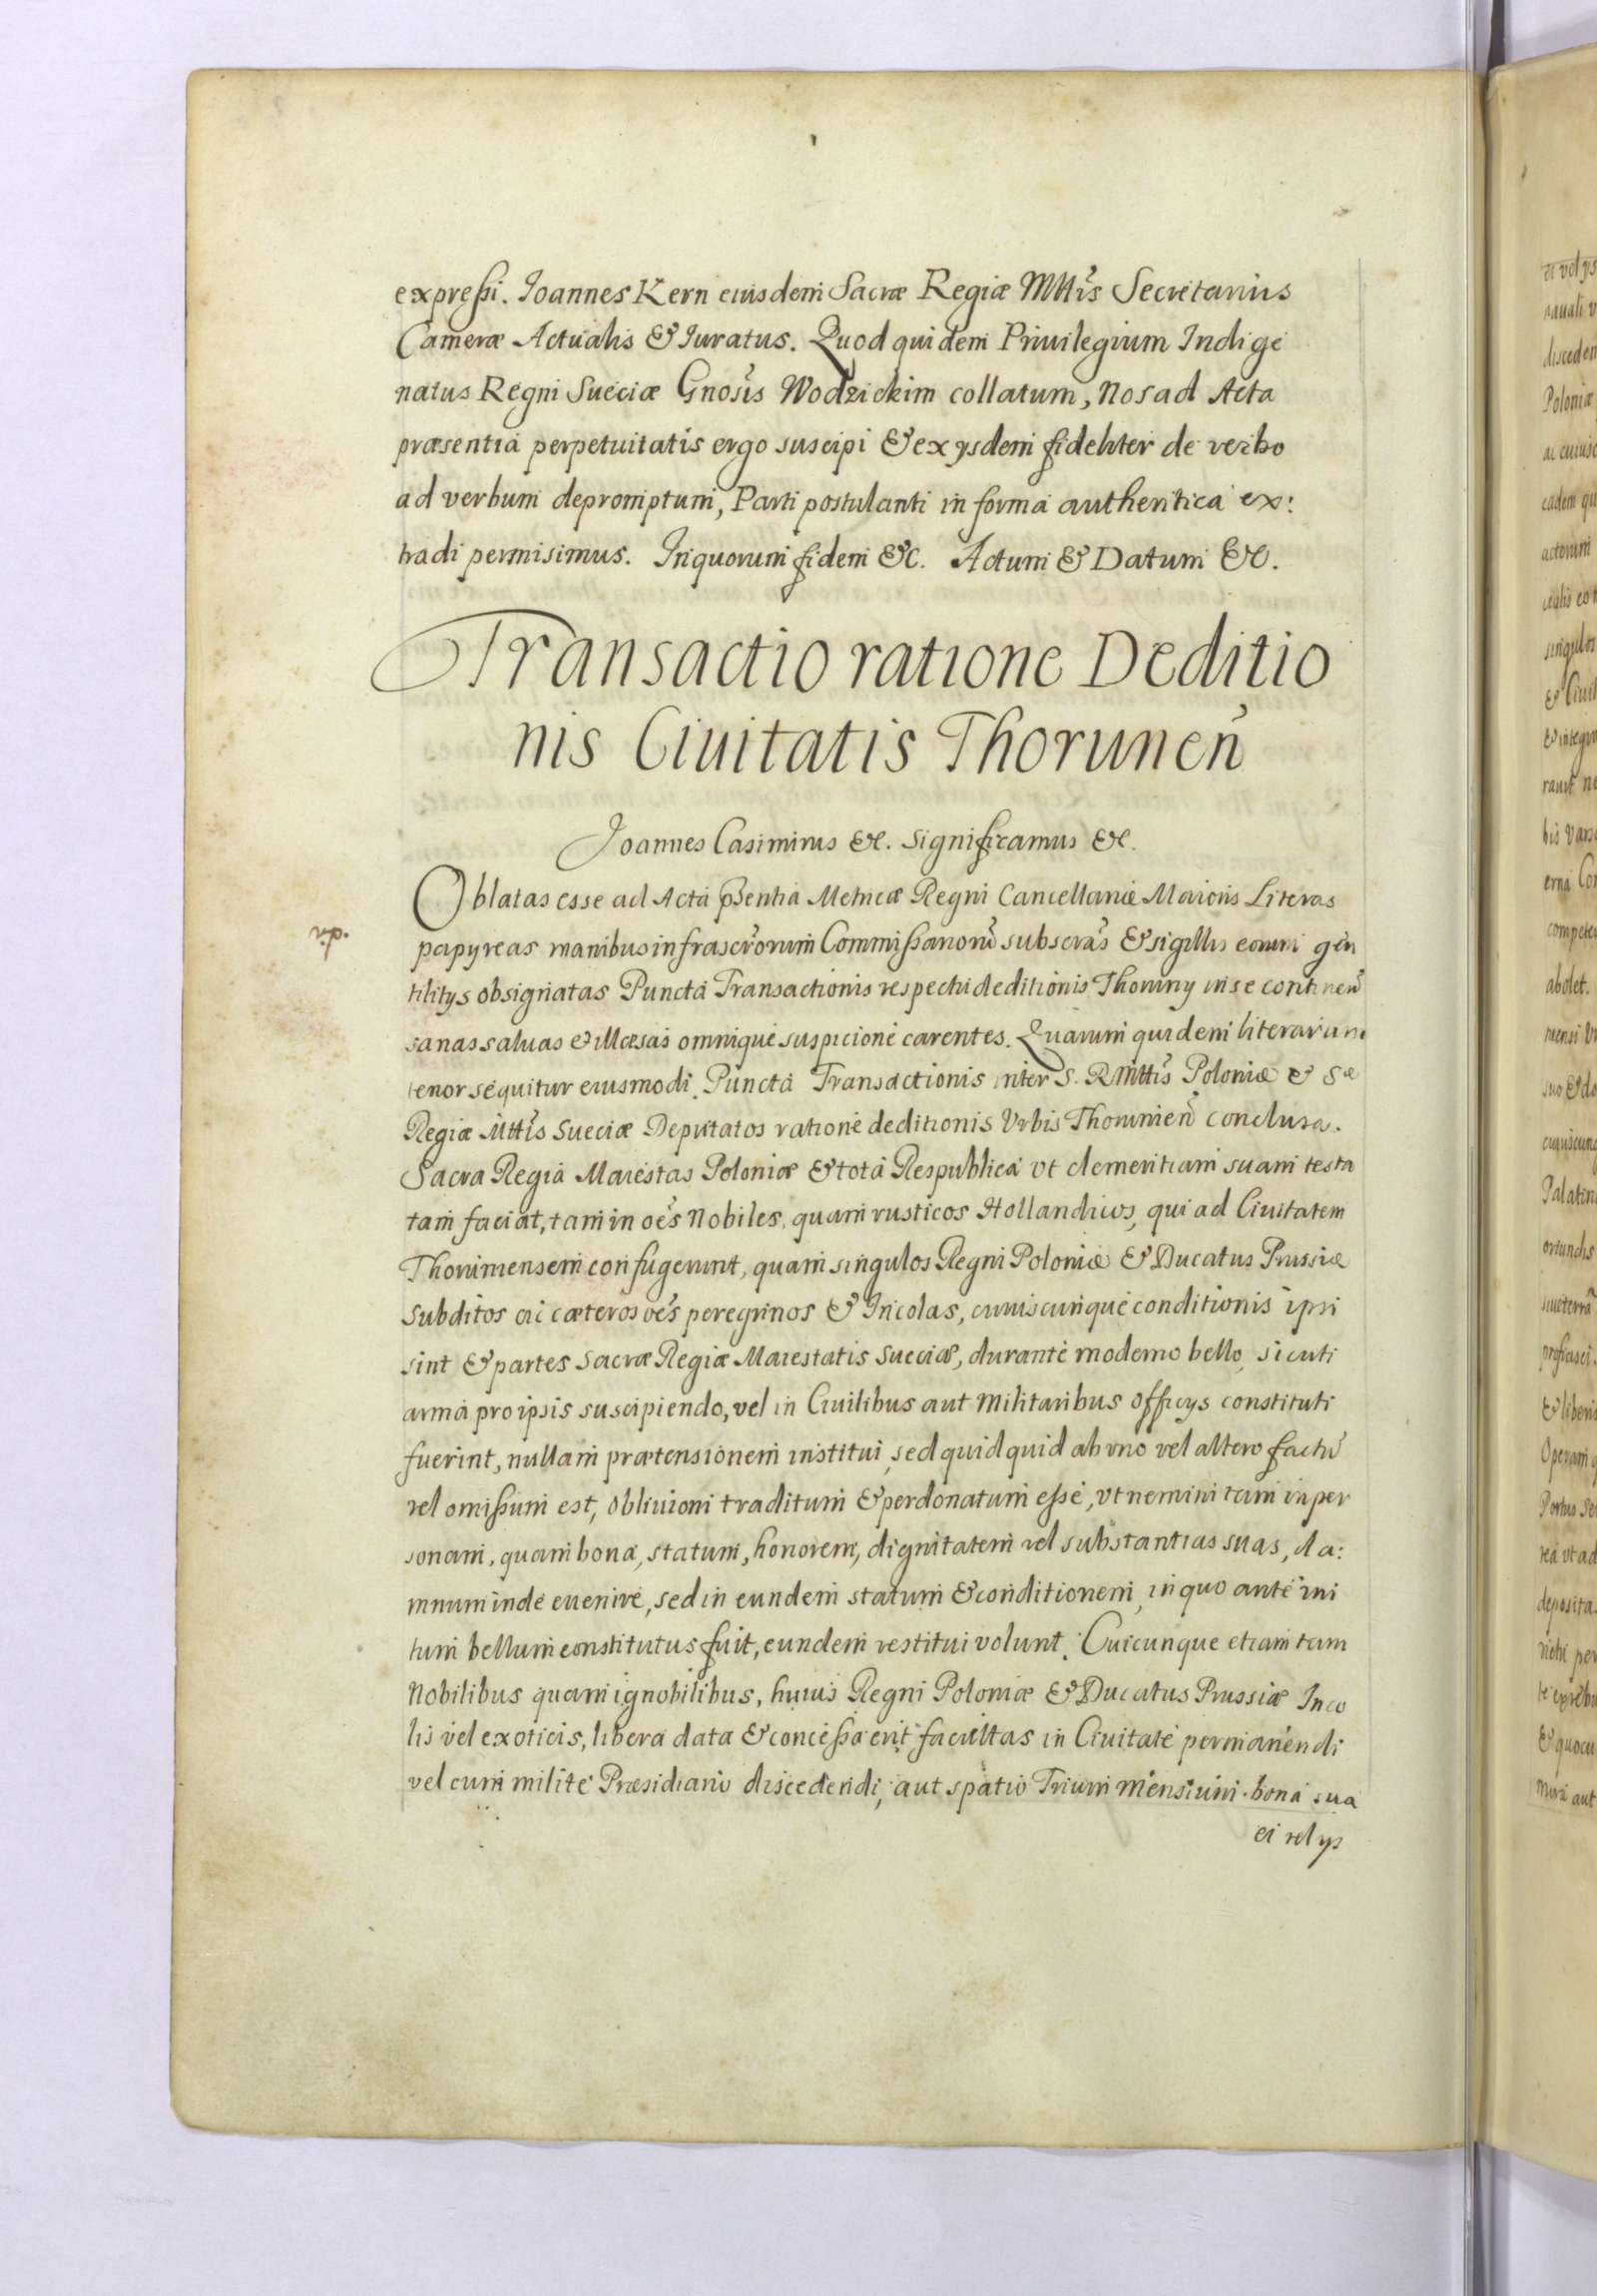 expressi. Joannes Kern eiusdem Sacræ Regiæ Mttis Secretarius
Cameræ Actualis & Iuratus. Quod quidem Priuilegium Indige
natus Regni Sueciæ Gnosis Wodzickim collatum, Nos ad Acta
præsentia perpetuitatis ergo suscipi & ex ysdem fideliter de verbo
ad verbum depromptum, Parti postulanti in forma authentica ex:
tradi permisimus. In quorum fidem &c. Actum & Datum &c.
Transactio ratione Deditio
nis Ciuitatis Thorunen
Joannes Casimirus &c. Significamus &c.
Oblatas esse ad Acta pñsentia Metricæ Regni Cancellariæ Maioris Literas
papyreas manibus infrascrorum Commissariorũ subscras & sigillis eorum gen
tilitys obsignatas Puncta Transactionis respectu deditionis Thoruny in se continen
sanas saluas & illæsas omnique suspicione carentes. Quarum quidem literarum
tenor sequitur eiusmodi. Puncta Transactionis inter S. R. Mttis Poloniæ & Sæ
Regiæ Mttis Sueciæ Deputatos ratione deditionis Vrbis Thorunien conclusa.
Sacra Regia Maiestas Poloniæ & tota Respublica vt clementiam suam testa
tam faciat, tam in oes Nobiles, quam rusticos Hollandicos, qui ad Ciuitatem
Thoruniensem confugerunt, quam singulos Regni Poloniæ & Ducatus Prussiæ
subditos ac cæteros oes peregrinos & Incolas, cuiuscunque conditionis ipsi
sint & partes Sacræ Regiæ Maiestatis Sueciæ, durante moderno bello, sicuti
arma pro ipsis suscipiendo, vel in Ciuilibus aut Militaribus Officys constituti
fuerint, nullam prætensionem institui, sed quidquid ab vno vel altero factũ
vel omissum est, obliuioni traditum & perdonatum esse, vt nemini tam in per
sonam, quam bona, statum, honorem, dignitatem vel substantias suas, da:
mnum inde euenire, sed in eundem statum & conditionem, in quo ante ini
tum bellum constitutus fuit, eundem restitui volunt. Cuicunque etiam tam
Nobilibus quam ignobilibus, huius Regni Poloniæ & Ducatus Prussiæ Inco
lis vel exoticis, libera data & concessa erit facultas in Ciuitate permanendi
vel cum milite Præsidiario discedendi, aut spatio Trium mensium bona sua
ei vel ys